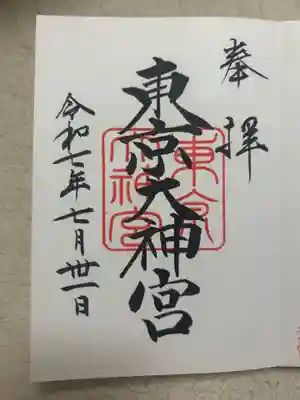 奉拝
東京大神宮
東京大神宮
令和七年七月卅一日